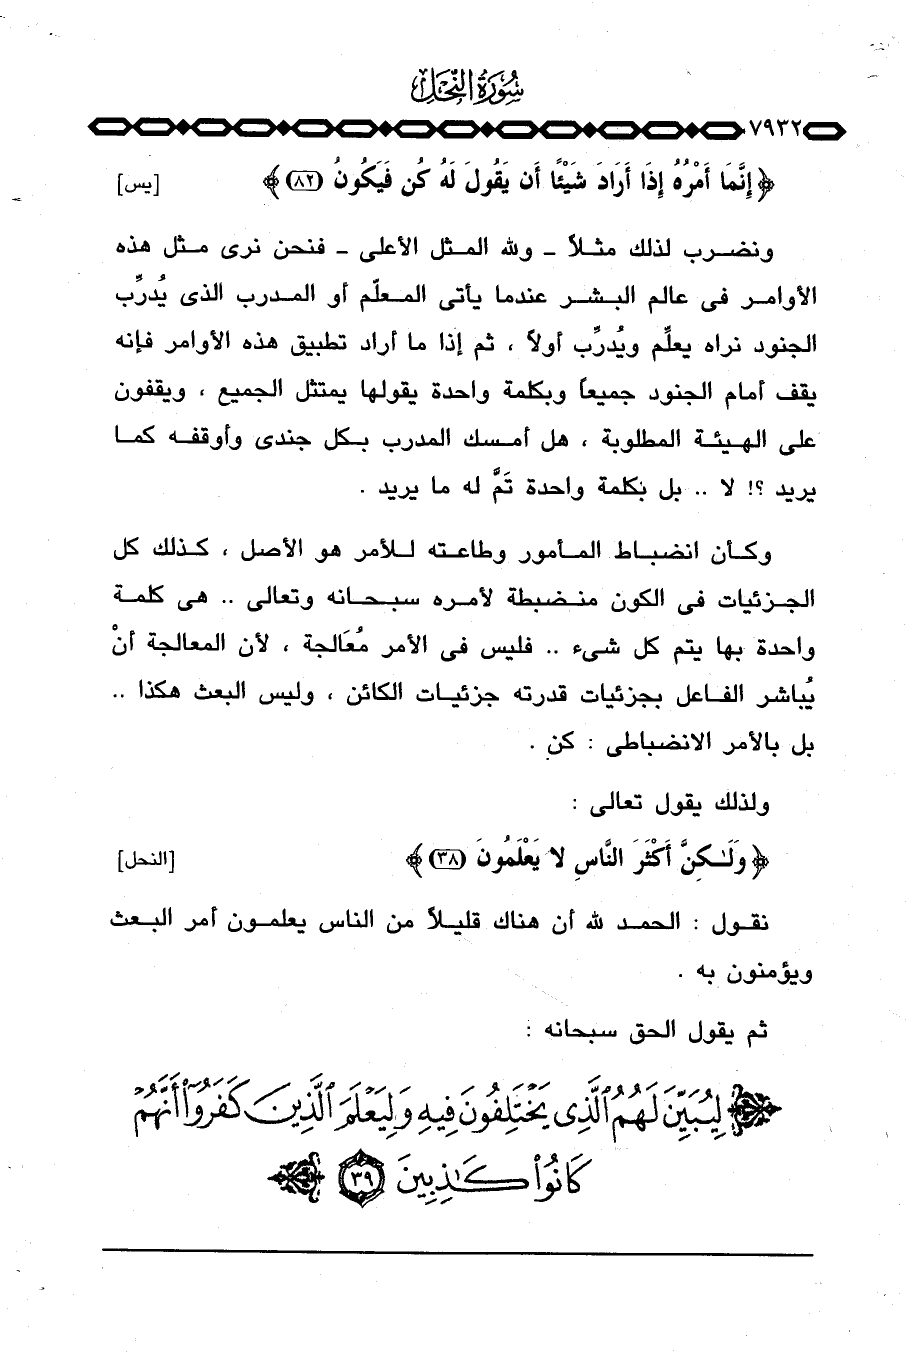 سُورَةُ النَّحْلِ
٧٩٣٢
﴿ إِنَّمَا أَمْرُهُ إِذَا أَرَادَ شَيْئًا أَن يَقُولَ لَهُ كُن فَيَكُونُ (٨٢) ﴾ [يس]
ونضرب لذلك مثلاً ـ ولله المثل الأعلى ـ فنحن نرى مثل هذه
الأوامر فى عالم البشر عندما يأتى المعلّم أو المدرب الذى يُدرِّب
الجنود نراه يعلِّم ويُدرِّب أولاً ، ثم إذا ما أراد تطبيق هذه الأوامر فإنه
يقف أمام الجنود جميعاً وبكلمة واحدة يقولها يمتثل الجميع ، ويقفون
على الهيئة المطلوبة ، هل أمسك المدرب بكل جندى وأوقفه كما
يريد ؟! لا .. بل بكلمة واحدة تَمَّ له ما يريد .
وكأن انضباط المأمور وطاعته للأمر هو الأصل ، كذلك كل
الجزئيات فى الكون منضبطة لأمره سبحانه وتعالى .. هى كلمة
واحدة بها يتم كل شىء .. فليس فى الأمر مُعَالجة ، لأن المعالجة أنْ
يُباشر الفاعل بجزئيات قدرته جزئيات الكائن ، وليس البعث هكذا ..
بل بالأمر الانضباطى : كن .
ولذلك يقول تعالى :
﴿ وَلَـٰكِنَّ أَكْثَرَ النَّاسِ لا يَعْلَمُونَ (٣٨) ﴾ [النحل]
نقول : الحمد لله أن هناك قليلاً من الناس يعلمون أمر البعث
ويؤمنون به .
ثم يقول الحق سبحانه :
﴿ لِيُبَيِّنَ لَهُمُ ٱلَّذِى يَخْتَلِفُونَ فِيهِ وَلِيَعْلَمَ ٱلَّذِينَ كَفَرُوٓا۟ أَنَّهُمْ
كَانُوا۟ كَـٰذِبِينَ ٣٩ ﴾